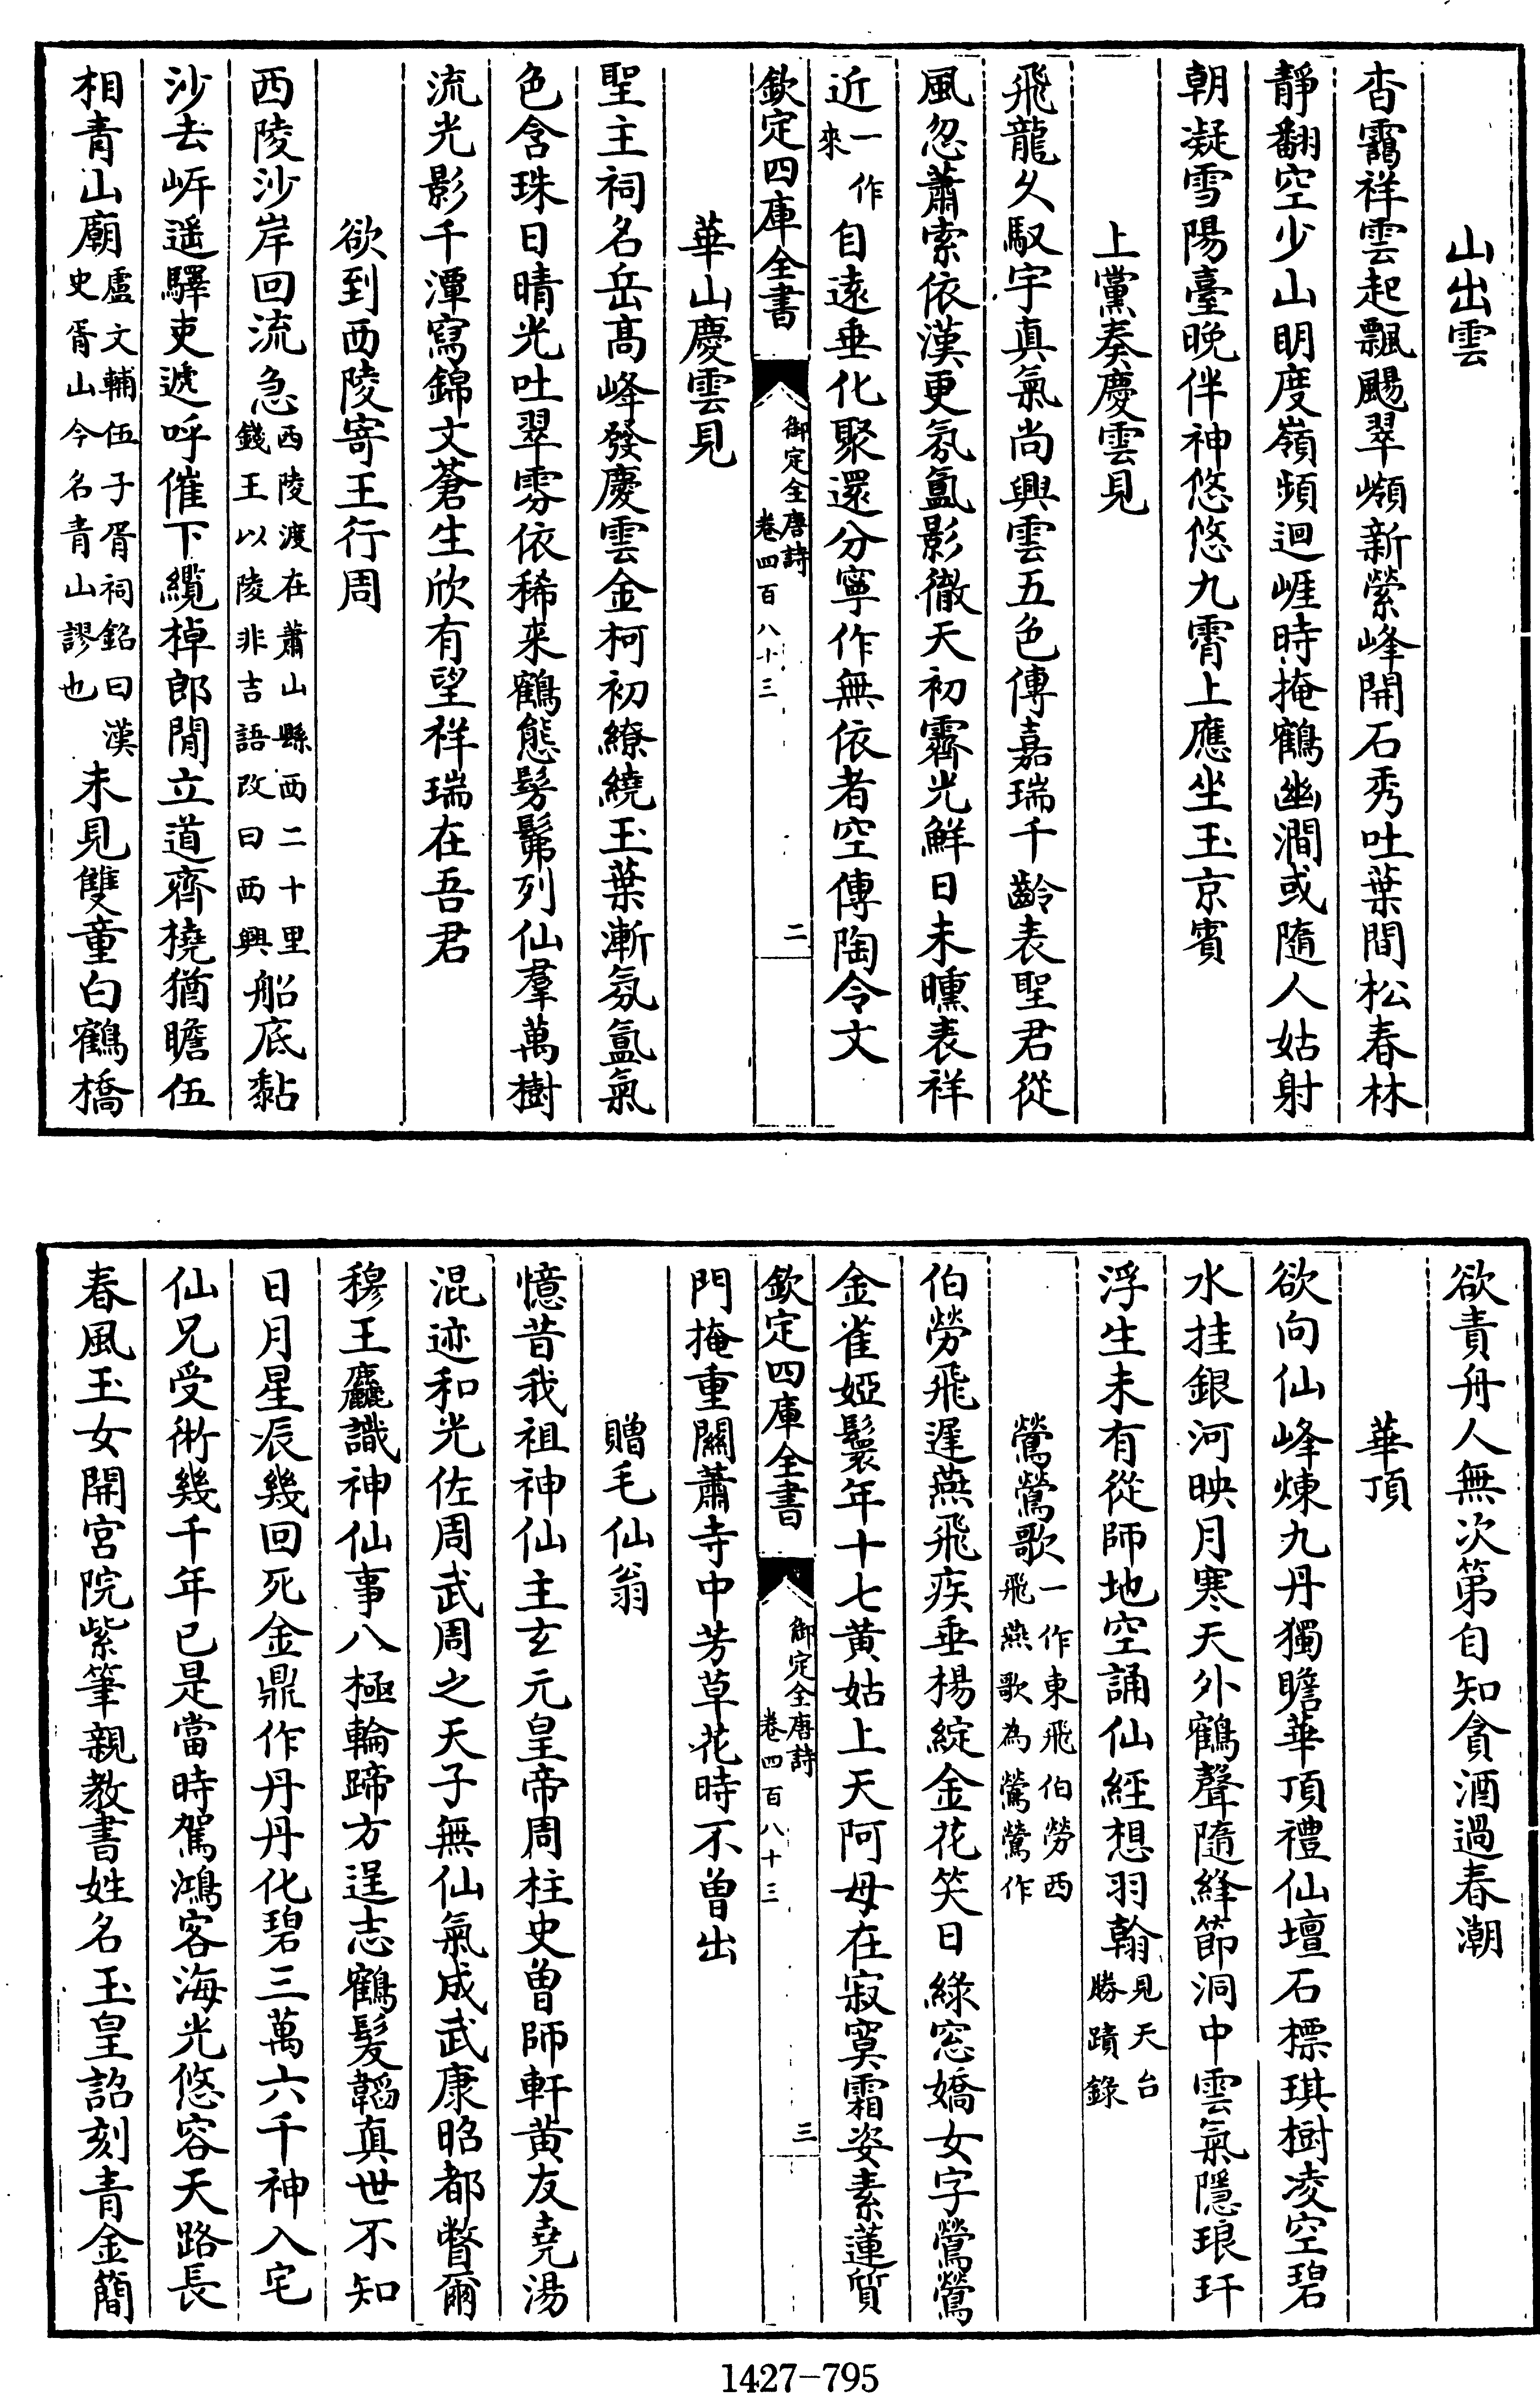 山出雲
杳靄祥雲起飄颺翠嶺新縈峰開石秀吐葉間松春林
靜翻空少山明度嶺頻迴崕時掩鶴幽澗或隨人姑射
朝凝雪陽臺晚伴神悠悠九霄上應坐玉京賓
上黨奏慶雲見
飛龍久馭宇真氣尚興雲五色傳嘉瑞千齡表聖君從
風忽蕭索依漢更氛氳影徹天初霽光鮮日未曛表祥
近一作來自遠垂化聚還分寧作無依者空傳陶令文
欽定四庫全書 御定全唐詩卷四百八十三 二
華山慶雲見
聖主祠名岳高峰發慶雲金柯初繚繞玉葉漸氛氳氣
色含珠日晴光吐翠雰依稀來鶴態髣髴列仙羣萬樹
流光影千潭寫錦文蒼生欣有望祥瑞在吾君
欲到西陵寄王行周
西陵沙岸回流急西陵渡在蕭山縣西二十里錢王以陵非吉語改曰西興船底黏
沙去岍遥驛吏遞呼催下纜棹郎閒立道齊橈猶瞻伍
相青山廟盧文輔伍子胥祠銘曰漢史胥山今名青山謬也未見雙童白鶴橋
欲責舟人無次第自知貪酒過春潮
華頂
欲向仙峰煉九丹獨瞻華頂禮仙壇石標琪樹凌空碧
水挂銀河映月寒天外鶴聲隨絳節洞中雲氣隱琅玕
浮生未有從師地空誦仙經想羽翰見天台勝蹟錄
鶯鶯歌一作東飛伯勞西飛燕歌為鶯鶯作
伯勞飛遲燕飛疾垂楊綻金花笑日綠窓嬌女字鶯鶯
金雀婭鬟年十七黄姑上天阿母在寂寞霜姿素蓮質
欽定四庫全書 御定全唐詩卷四百八十三 三
門掩重關蕭寺中芳草花時不曾出
贈毛仙翁
憶昔我祖神仙主玄元皇帝周柱史曾師軒黄友堯湯
混迹和光佐周武周之天子無仙氣成武康昭都瞥爾
穆王麤識神仙事八極輪蹄方逞志鶴髮韜真世不知
日月星辰幾回死金鼎作丹丹化碧三萬六千神入宅
仙兄受術幾千年已是當時駕鴻客海光悠容天路長
春風玉女開宮院紫筆親教書姓名玉皇詔刻青金簡
1427-795